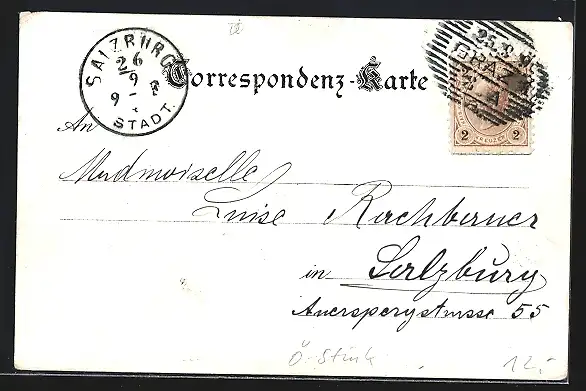 SALZBURG
26
9
9 - F
STADT.
Correspondenz-Karte
GRAZ
2 KREUZER 2
An
Madmoiselle
Luise Rachberner
in Salzburg
Auerspergstrasse 55
Ö. Stmk
12,-